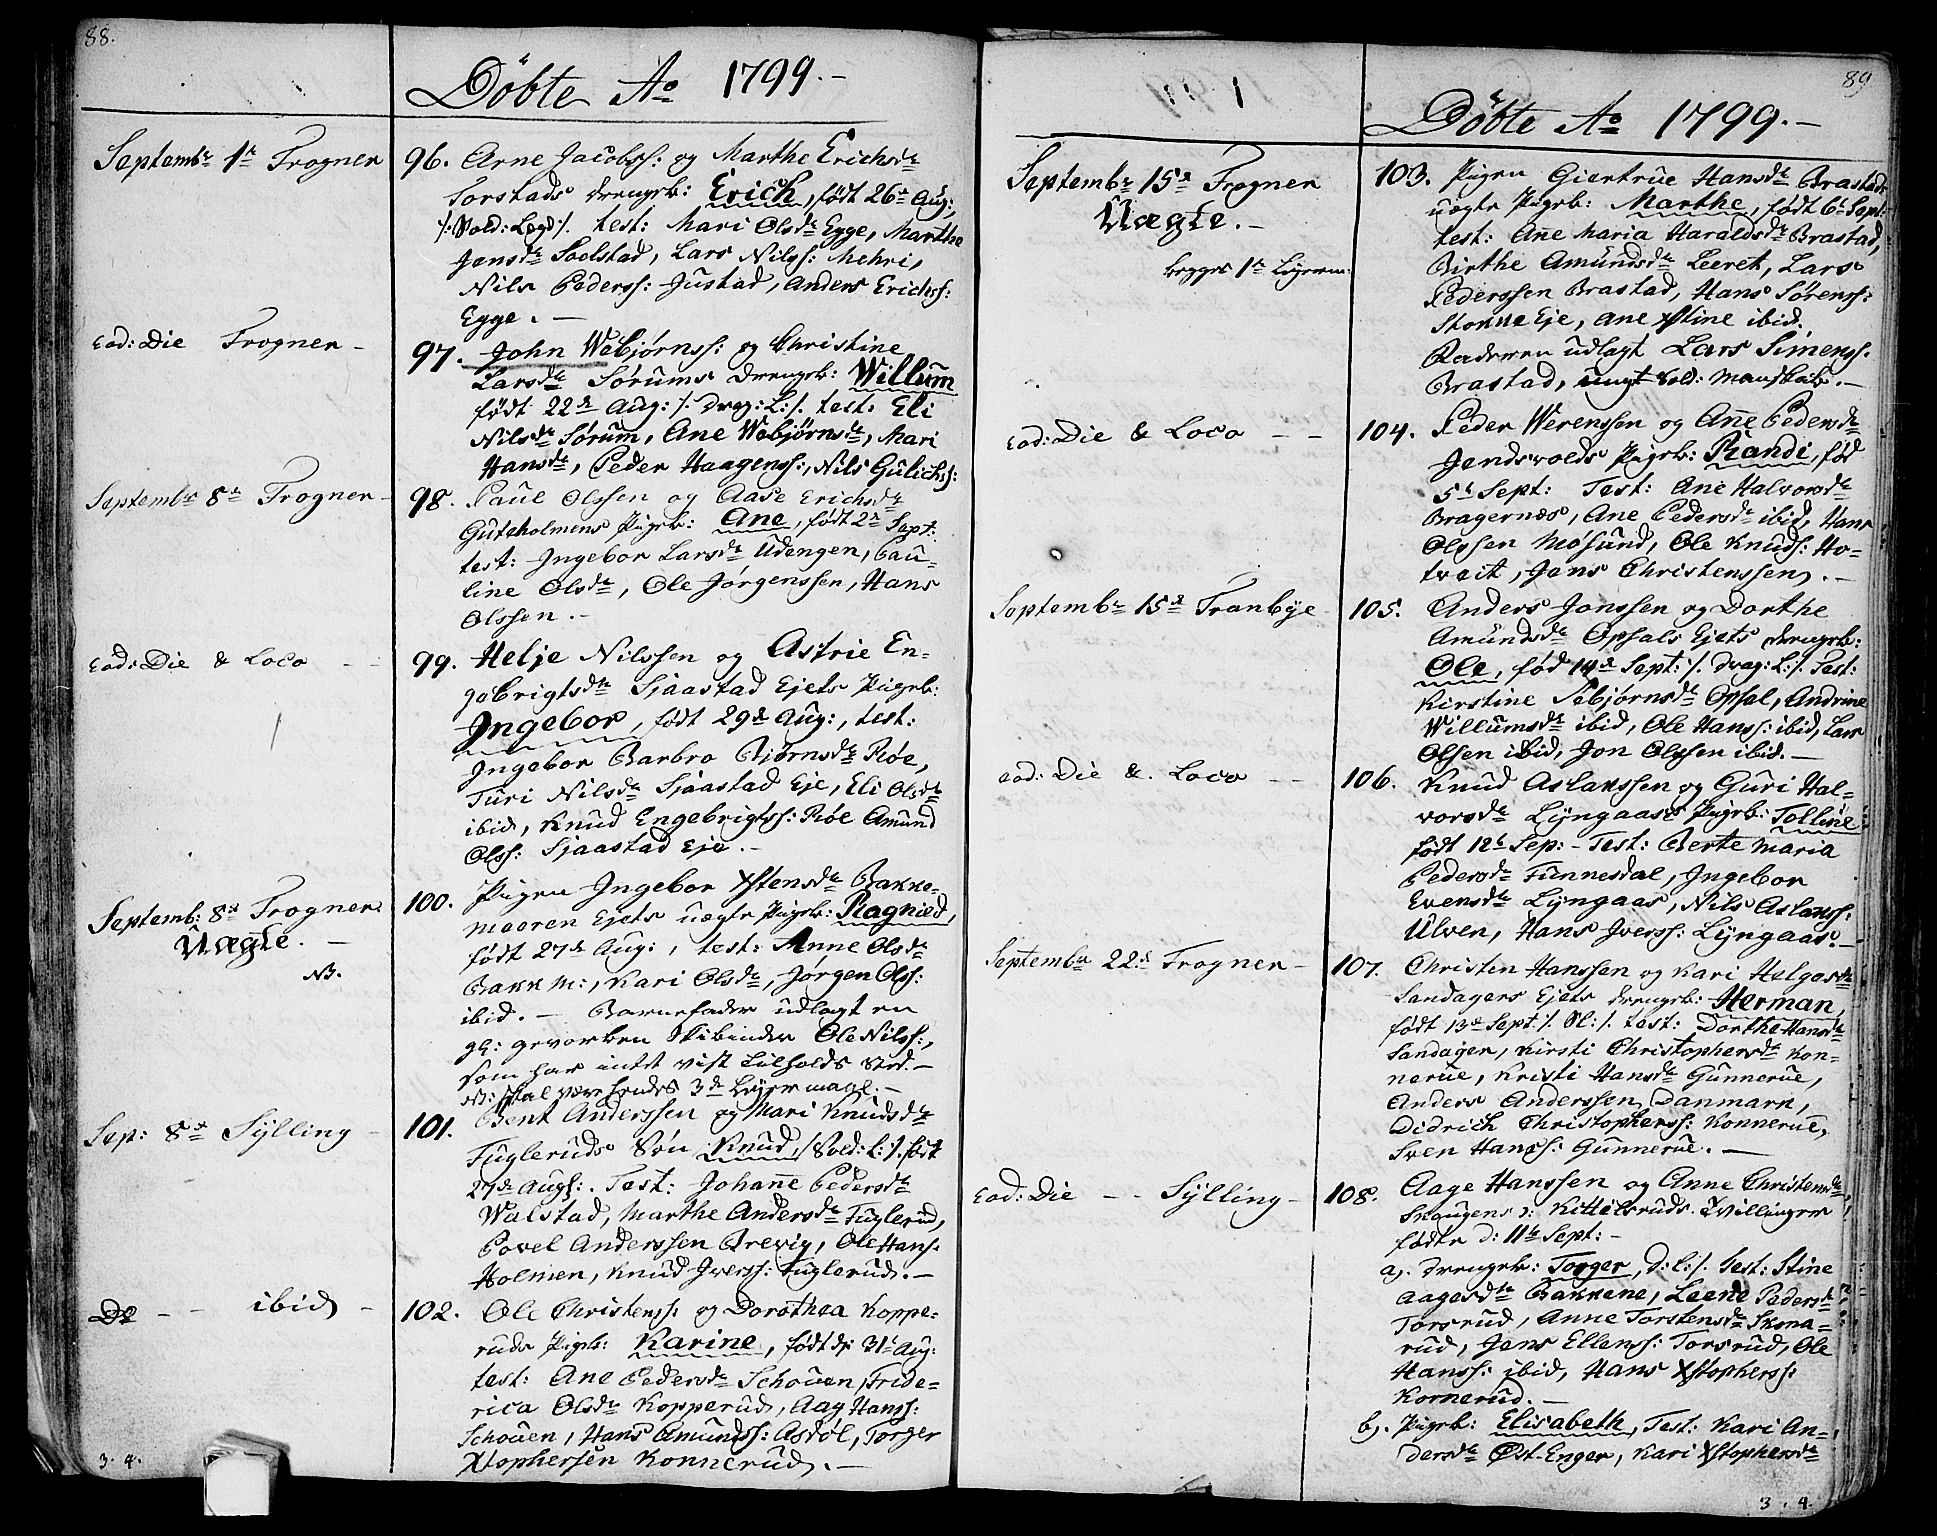 88.
Döbte Ao 1799.-
Septembr 1te Frogner
96. Arne Jacobss: og Marthe Erichsdr
Torstads drengeb: Erich, født 26de Aug:,
/: Sold: Legd/. test: Mari Olsdr Egge, Marthe
Jensdr Soelstad, Lars Nilss: Mehri,
Nils Pederss: Justad, Anders Erichss:
Egge. -
Eod: Die Frogner -
97. John Webjørnss: og Christine
Larsdr Sørums drengeb: Willum
født 22de Aug: /. drag: L: /. test: Eli
Nilsdr Sørum, Ane Webjørnsdr, Mari
Hansdr, Peder Haagenss:, Nils Gulichs:
Septembr 8de Frogner -
98. Paul Olssen og Aase Erichsdr
Guteholmens Pigeb: Ane, født 2de Sept:
test: Ingebor Larsdr Udengen, Pau-
line Olsdr, Ole Jørgenssen, Hans
Olssen. -
Eod: Die & Loco - -
99. Helje Nilssen og Astrie En-
gebrigtsdr Sjaastad Ejets Pigeb:
Ingebor, født 29de Aug:, test:
Ingebor Barbro Bjørnsdr Røe,
Turi Nilsdr Sjaastad Eje, Eli Olsdr
ibid, Knud Engebrigtss: Røe Amund
Olss: Sjaastad Eje. -
Septemb: 8de Frogner
Uægte. -
NB.
100. Pigen Ingebor Xstensdr Bakke-
moeren Ejets uægte Pigeb: Ragnild,
født 27de Aug:, test: Anne Olsdr
Bakkm:, Kari Olsdr, Jørgen Olss:
ibid. - Barnefader udlagt en
gl: gevorben Skibinder Ole Nilss:,
som har intet vist Tilholds Sted. -
NB: skal være hendes 3de Lejermaal. -
Sep: 8de Sylling -
101. Bent Anderssen og Mari Knudsdr
Fugleruds Søn Knud, /Sold: L: /. født
27de Augs:. Test: Johanne Pedersdr
Walstad, Marthe Andersdr Fuglerud,
Povel Anderssen Previg, Ole Hans:
Holmen, Knud Iverss: Fuglerud. -
Do - - ibid -
102. Ole Christenss: og Dorothea Koppe-
ruds Pigeb: Karine, født d: 31te Aug:
test: Ane Pedersdr Schouen, Fride-
rica Olsdr Kopperud, Aag Hanss:
Schouen, Hans Amundss: Asdøl, Torger
Xstophersen Konnerud. -
3. 4.
89
Döbte Ao 1799. -
Septembr 15de Frogner
Uægte. -
begges 1te Lejerm:
103. Pigen Giertrue Hansdr Brastads
uægte Pigeb: Marthe, født 6te Sept:
test: Ane Maria Haraldsdr Brastad,
Birthe Amundsdr Leeret, Lars
Pederssen Brastad, Hans Sørenss:
Stokke Eje, Ane Xstine ibid.
Faderen udlagt Lars Simenss:
Brastad, ungt Sold: Mandskab. -
Eod: Die & Loco - -
104. Peder Werenssen og Ane Pedersdr
Jendsvolds Pigeb: Randi, fød
5te Sept: Test: Ane Halvorsdr
Bragernæs, Ane Pedersdr ibid, Hans
Olssen Møsund, Ole Knuds: Ho-
tveit, Jens Christenssen. -
Septembr 15de Tranbye
105. Anders Jonssen og Dorthe
Amundsdr Opsals Ejets drengeb:
Ole, fød 14de Sept: /. drag: L: /. Test:
Kirstine Tebjørnsdr Opsal, Andrine
Willumsdr ibid, Ole Hanss: ibid, Lars
Olsen ibid, Jon Olssen ibid. -
eod: Die &. Loco - -
106. Knud Aslakssen og Guri Hal-
vorsdr Lyngaass Pigeb: Tolline
født 12te Sep: - Test: Berte Maria
Pedersdr Tunnesdal, Ingebor
Evensdr Lyngaas, Nils Aslakss:
Ulven, Hans Iverss: Lyngaas. -
Septembr 22de Frogner -
107. Christen Hanssen og Kari Helgesdr
Sandagers Ejets drengeb: Herman,
født 13de Sept: /. Sl: /. test: Dorthe Hansdr
Sandager, Kirsti Christophersdr Kon-
nerue, Kristi Hansdr Gunnerue,
Anders Anderssen Danmark,
Didrich Christopherss: Konnerue,
Sven Hanss: Gunnerue. -
Eod: Die - - Sylling -
108. Aage Hanssen og Anne Christensdr
Skaugens ɔ: Kittilsruds Tvillinger
fødte d: 11te Sept: -
a). Drengeb: Torger, D: L: /. Test: Stine
Aagesdr Bakkene, Leene Pedersdr
Torsrud, Anne Torstensdr Skona-
rud, Jens Ellenss: Torsrud, Ole
Hanss: ibid, Hans Xstopherss:
Kornerud. -
b). Pigeb: Elisabeth, Test: Kari An-
dersdr Øst-Enger, Kari Xstophersdr
3. 4.